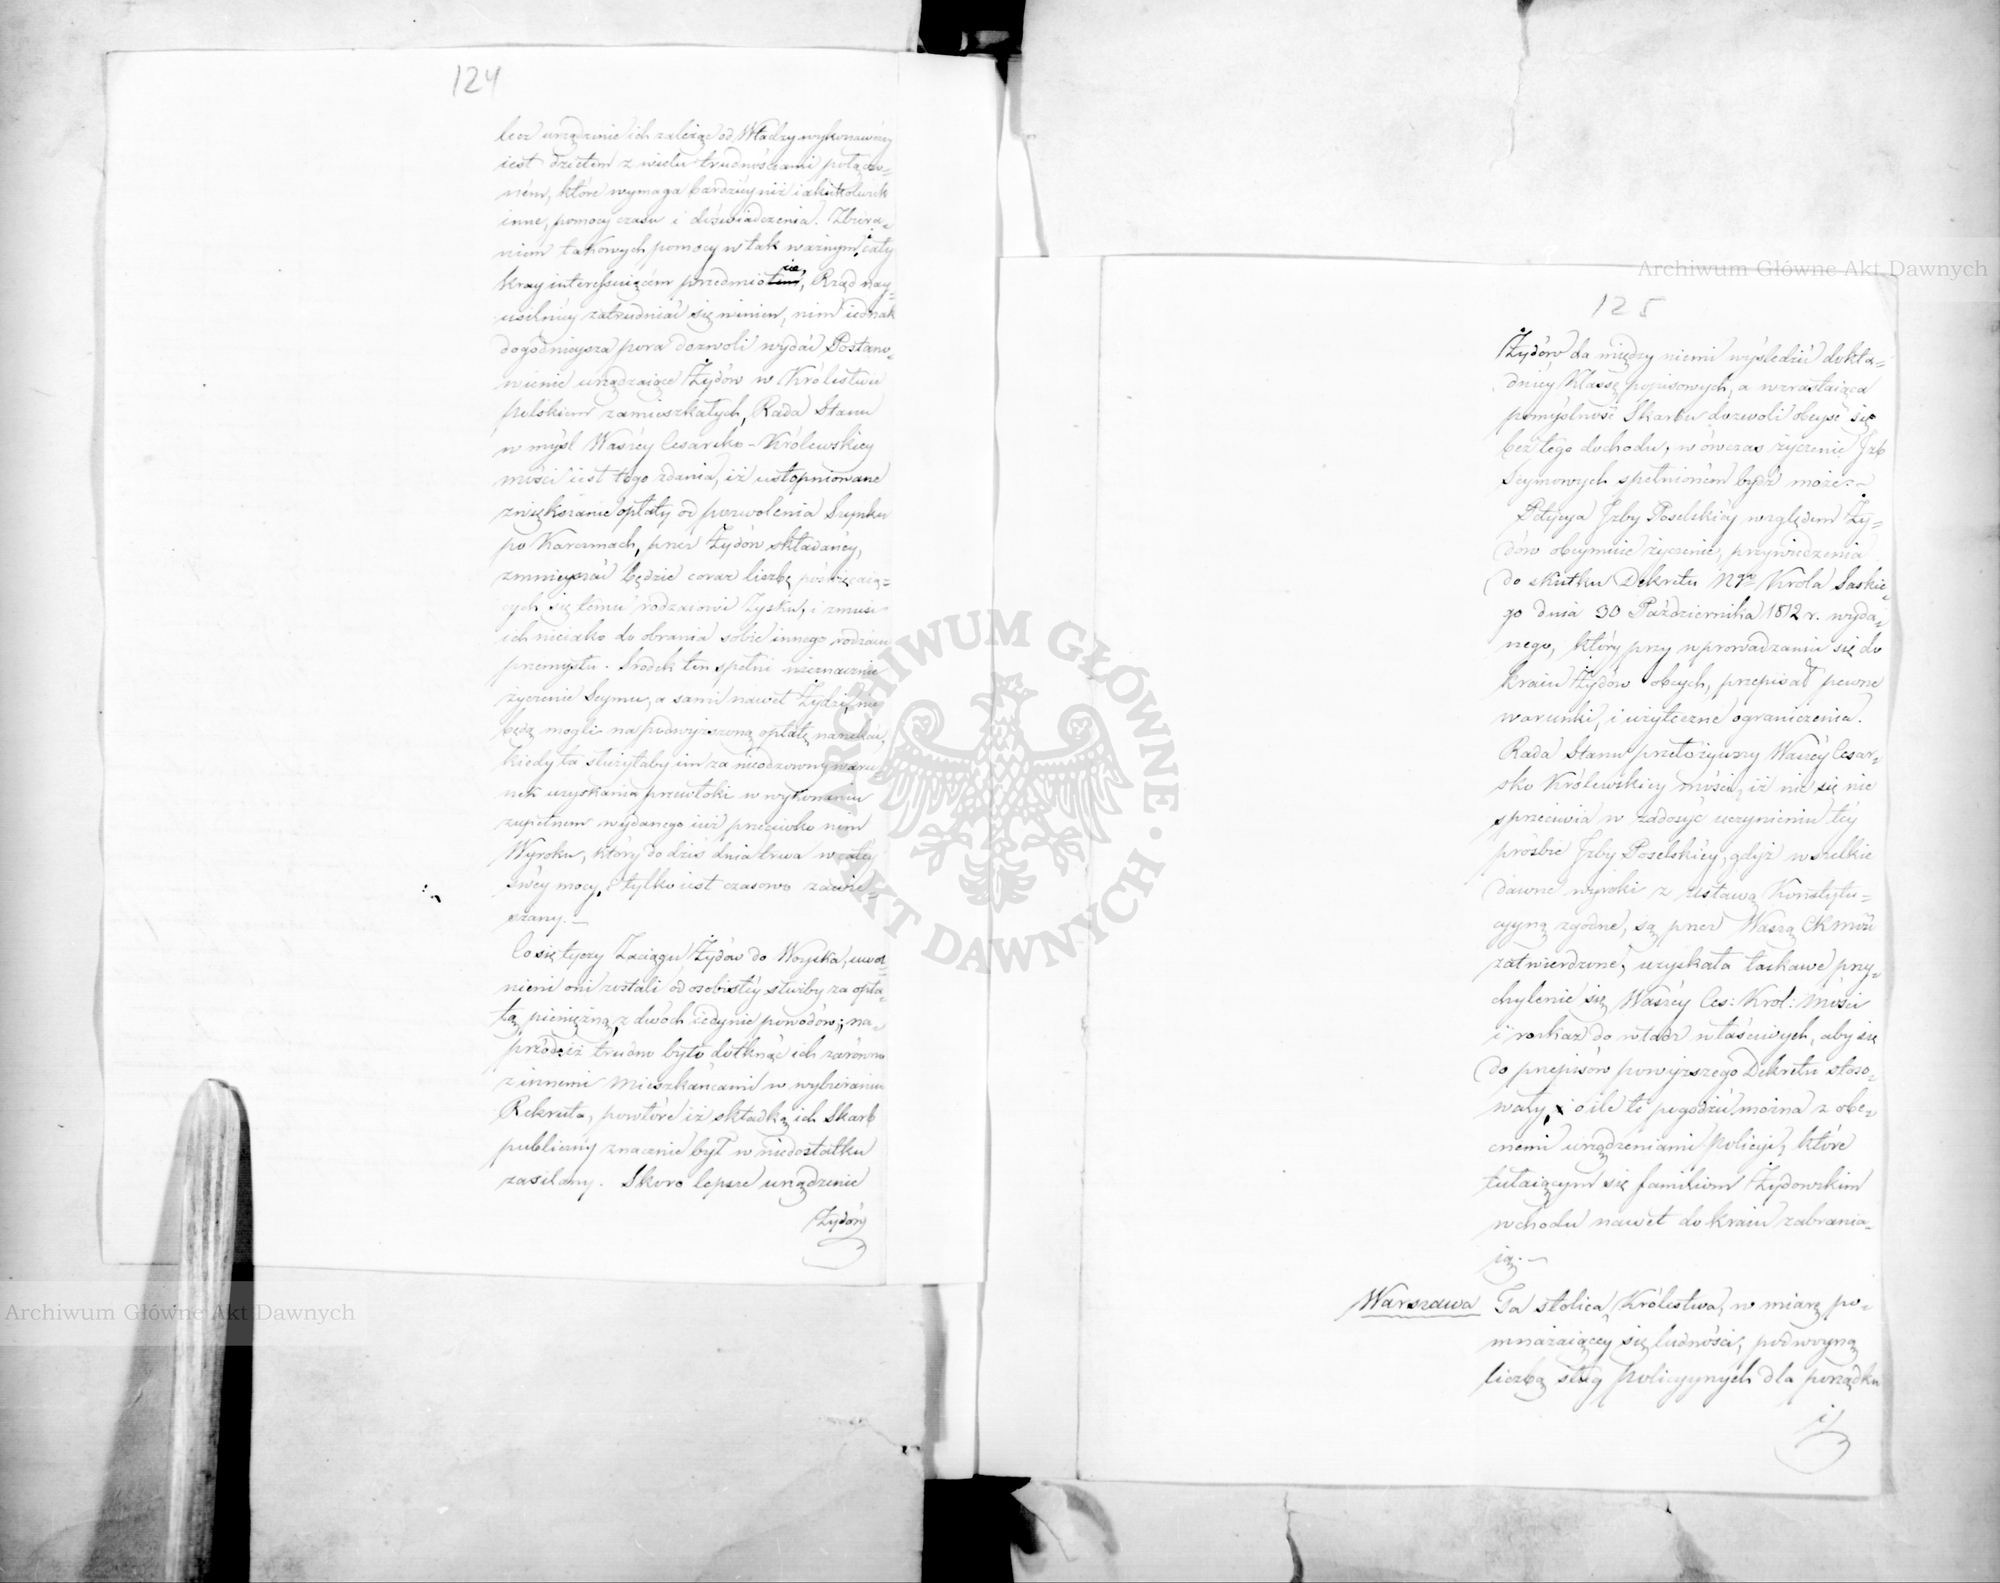 124
lecz urządzenie ich zależąc od Władzy wykonawczey
iest dziełem z wielu trudnościami połączo-
ném, które wymaga bardziéy niż iakiekolwiek
inne, pomocy czasu i doświadczenia. Zbiera-
niem takowych pomocy w tak ważnym, cały
kray interessuiącém przedmiocie, Rząd nay-
usilniéy zatrudniać się winien, nim iednak
dogodnieysza pora dozwoli wydać Postano-
wienie urządzaiące Żydów w Królestwie
polskiem zamieszkałych, Rada Stanu
w myśl Waszéy Cesarsko-Królewskiey
mości iest tego zdania, iż ustopniowane
zwiększanie opłaty od pozwolenia Szynku
po Karczmach, przez Żydów składanéy,
zmnieyszać będzie coraz liczbę poświęcaią-
cych się temu rodzaiowi Zysku, i zmusi
ich nieiako do obrania sobie innego rodzaiu
przemysłu. Srodek ten spełni nieznacznie
życzenie Seymu, a sami nawet Żydzi, nie
będą mogli na podwyższoną opłatę narzekać,
kiedy ta służyłaby im za nieodzowny waru-
nek uzyskania przewłoki w wykonaniu
zupełnem wydanego iuż przeciwko nim
Wyroku, który do dziś dnia trwa w całéy
swéy mocy, i tylko iest czasowo zawie-
szany. —
Co się tyczy Zaciągu Żydów do Woyska, uwol-
nieni oni zostali od osobistéy służby za opła-
tą pieniężną, z dwóch iedynie powodów; na-
przód iż trudno było dotknąć ich zarówno
z innemi Mieszkańcami w wybieraniu
Rekruta, powtóre iż składką ich Skarb
publiczny znacznie był w niedostatku
zasilany. Skoro lepsze urządzenie
Żydów
125
Żydów da między niemi wyśledzić dokła-
dniéy Klassę popisowych, a wzrastaiąca
pomyślność Skarbu dozwoli obeyść się
bez tego dochodu, w ówczas życzenie Izb
Seymowych spełnioném bydź może. —
Petycya Izby Poselskiéy względem Ży-
dów obeymuie życzenie, przywiedzenia
do skutku Dekretu Ngo Króla Saskie-
go dnia 30 Października 1812 r. wyda-
nego, który przy wprowadzaniu się do
kraiu Żydów obcych, przepisał pewne
warunki, i użyteczne ograniczenia.
Rada Stanu przełożywszy Waszéy Cesar-
sko Królewskiey Mości, iż nic się nie
sprzeciwia w zadosyć uczynieniu téy
prośbie Izby Poselskiéy, gdyż wszelkie
dawne wyroki z ustawą Konstytu-
cyyną zgodne, są przez Waszą CKMość
zatwierdzone, uzyskała łaskawe przy-
chylenie się Waszéy Ces: Król: Mości
i rozkaz do władz właściwych, aby się
do przepisów powyższego Dekretu stoso-
wały, o ile te pogodzić można z obe-
cnemi urządzeniami Policyi, które
tułaiącym się familiom Żydowskim
wchodu nawet do kraiu zabrania-
ią. —
Warszawa Ta stolica Królestwa, w miarę po-
mnażaiącéy się ludności, podwoyną
liczbą sług Policyynych dla porządku
i
Archiwum Główne Akt Dawnych
Archiwum Główne Akt Dawnych
ARCHIWUM GŁÓWNE · AKT DAWNYCH ·